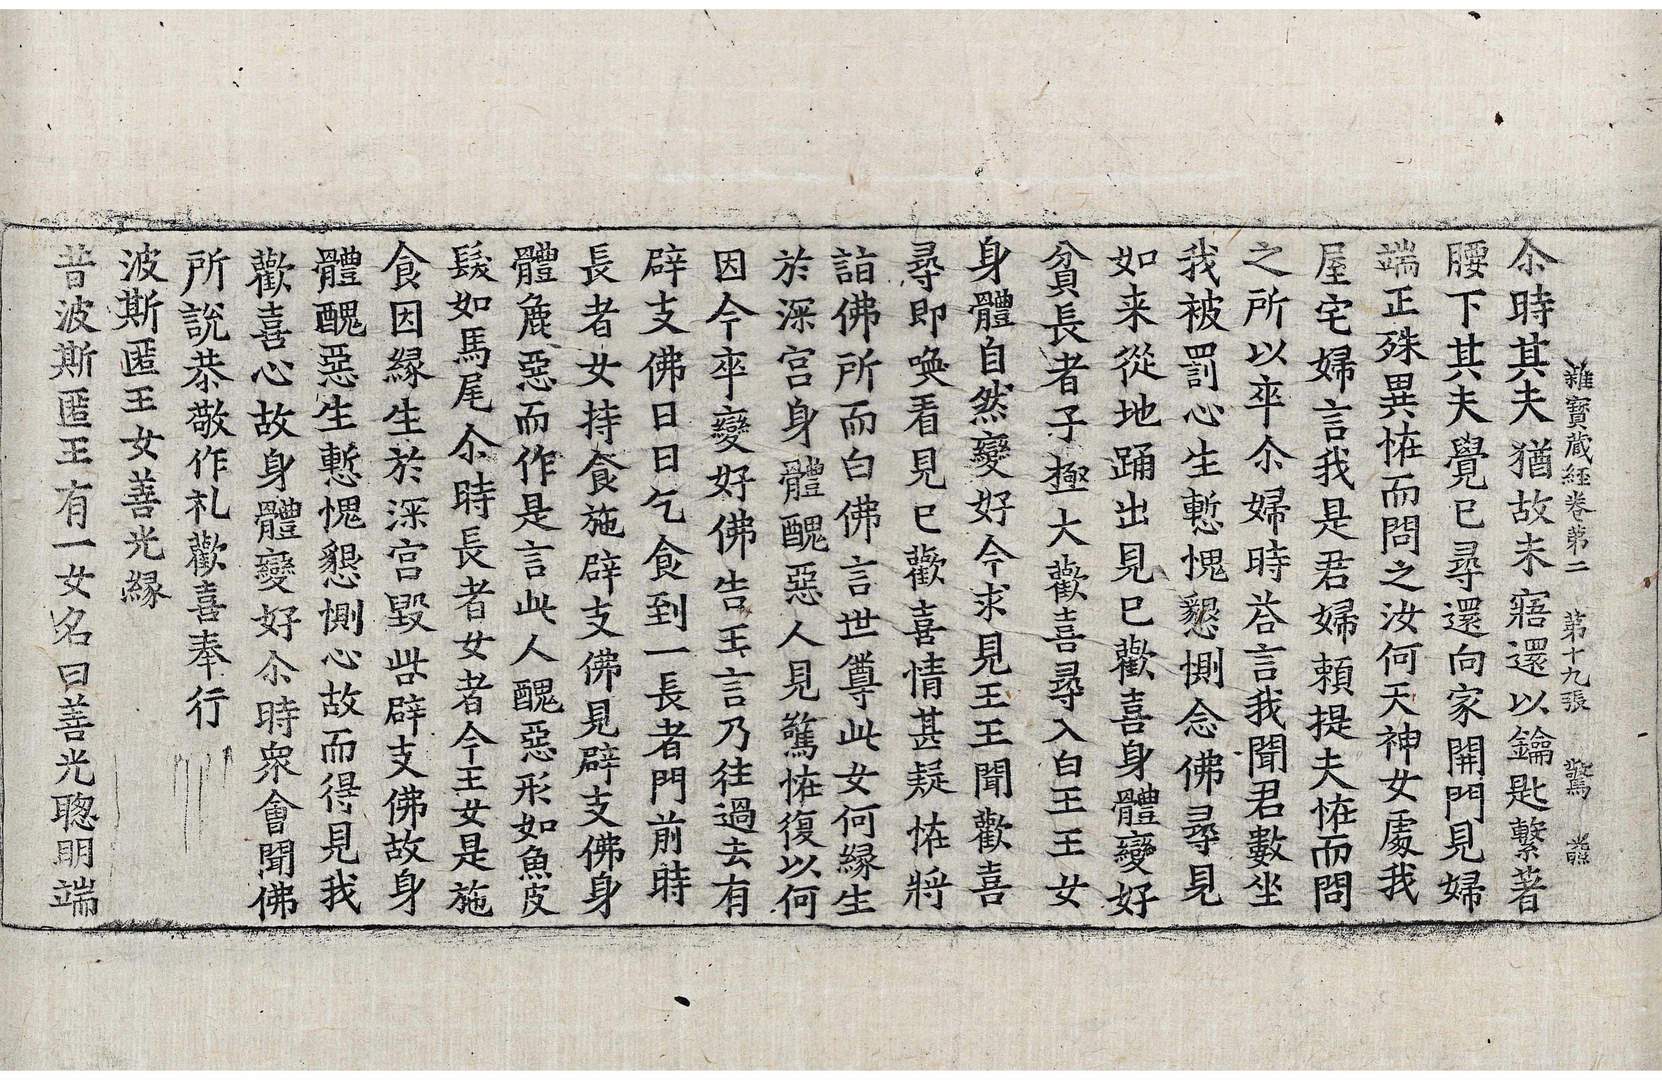 雜寶藏經卷第二 第十九張 驚
尒時其夫猶故未寤還以鑰匙繫著
腰下其夫覺已尋還向家開門見婦
端正殊異恠而問之汝何天神女處我
屋宅婦言我是君婦頼提夫恠而問
之所以卒尒婦時荅言我聞君數坐
我被罰心生慙愧懇惻念佛尋見
如来從地踊出見已歡喜身體變好
貧長者子極大歡喜尋入白王王女
身體自然變好今求見王王聞歡喜
尋即喚看見已歡喜情甚疑恠將
詣佛所而白佛言世尊此女何緣生
於深宫身體醜惡人見驚恠復以何
因今卒變好佛告王言乃往過去有
辟支佛日日乞食到一長者門前時
長者女持食施辟支佛見辟支佛身
體麁惡而作是言此人醜惡形如魚皮
髮如馬尾尒時長者女者今王女是施
食因緣生於深宫毀呰辟支佛故身
體醜惡生慙愧懇惻心故而得見我
歡喜心故身體變好尒時衆會聞佛
所說恭敬作礼歡喜奉行
波斯匿王女善光緣
昔波斯匿王有一女名曰善光聦明端